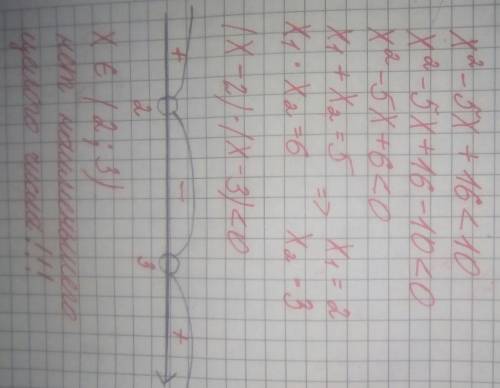 x² - 5x + 16 < 10
x² - 5x + 16 - 10 < 0
x² - 5x + 6 < 0
x₁ + x₂ = 5 x₁ = 2
x₁ · x₂ = 6 => x₂ = 3
(x - 2) · (x - 3) < 0
+ 2 - 3 +
x ∈ (2; 3)
нет наименьшего
целого числа!!!